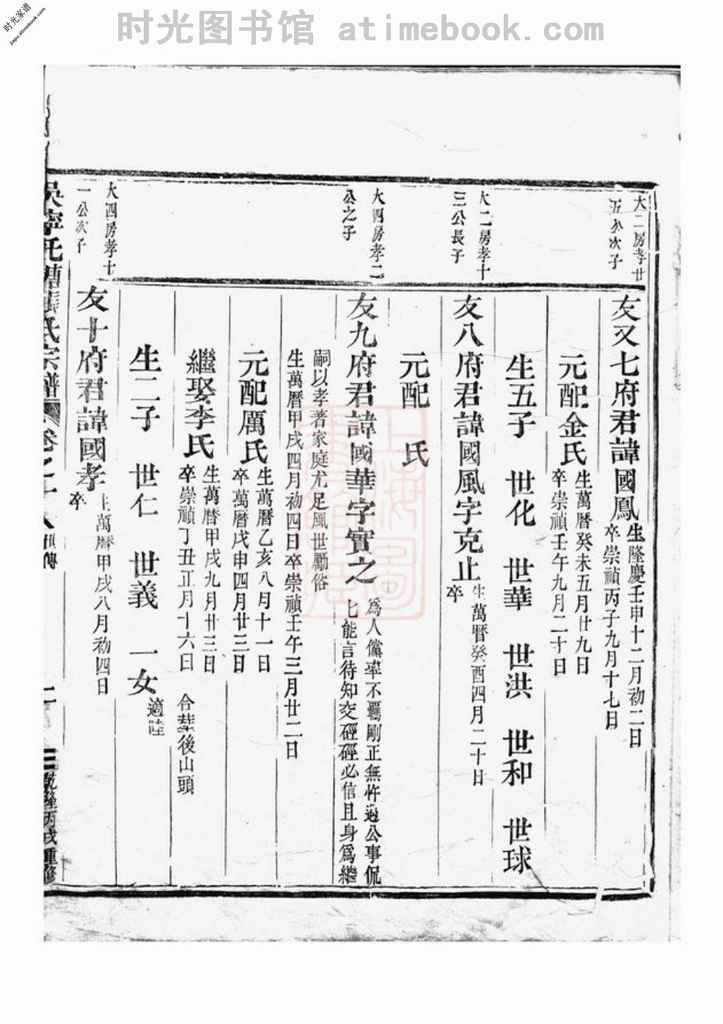 时光家谱
jiapu.atimebook.com
时光图书馆 atimebook.com
大二房孝廿
五公次子
友又七府君諱國鳳
生隆慶壬申十二月初二日
卒崇禎丙子九月十七日
元配金氏
生萬曆癸未五月廿九日
卒崇禎壬午九月二十日
生五子 世化 世華 世洪 世和 世球
大二房孝十
三公長子
友八府君諱國風字克止
生萬曆癸酉四月二十日
卒
元配 氏
大四房孝二
公之子
友九府君諱國華字實之
為人儻率不羈剛正無忤過公事侃
七能言待知交硜硜必信且身為繼
嗣以孝著家庭尤足風世勵俗
生萬曆甲戌四月初四日卒崇禎壬午三月廿二日
元配厲氏
生萬曆乙亥八月十一日
卒萬曆戊申四月廿三日
繼娶李氏
生萬曆甲戌九月廿三日
卒崇禎丁丑正月十六日
合葬後山頭
生二子 世仁 世義 一女
適陸
大四房孝十
一公次子
友十府君諱國孝
生萬曆甲戌八月初四日
卒
吳寧托塘張氏宗譜
卷之十八
乾隆丙戌重修